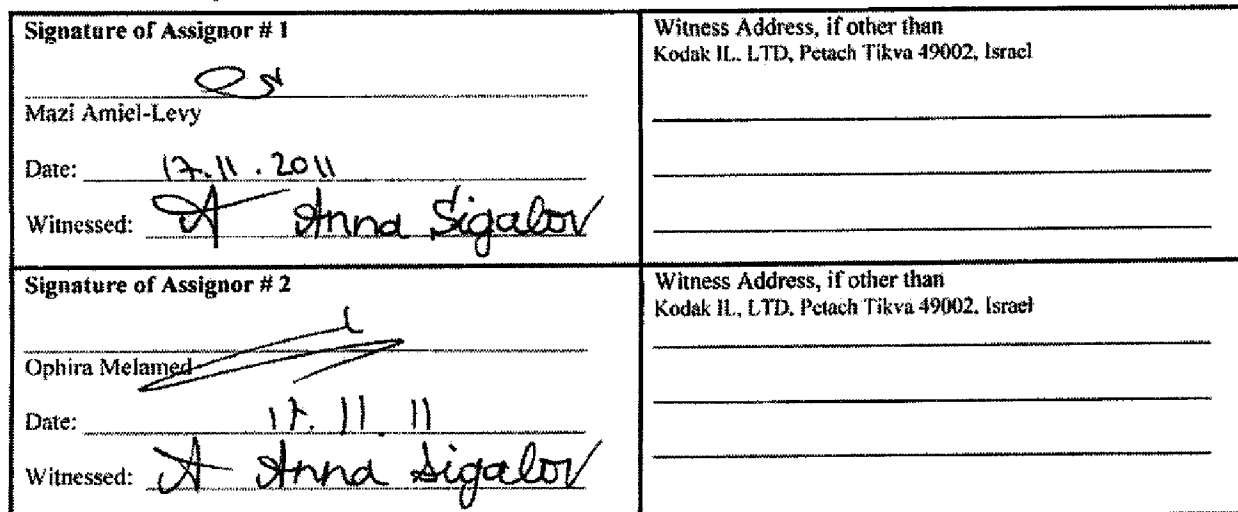 Signature of Assignor # 1
Mazi Amiel-Levy
Date: 17.11.2011
Witnessed: A Anna Sigalov
Witness Address, if other than
Kodak IL. LTD, Petach Tikva 49002, Israel
Signature of Assignor # 2
Ophira Melamed
Date: 17.11.11
Witnessed: A Anna Sigalov
Witness Address, if other than
Kodak IL, LTD, Petach Tikva 49002, Israel